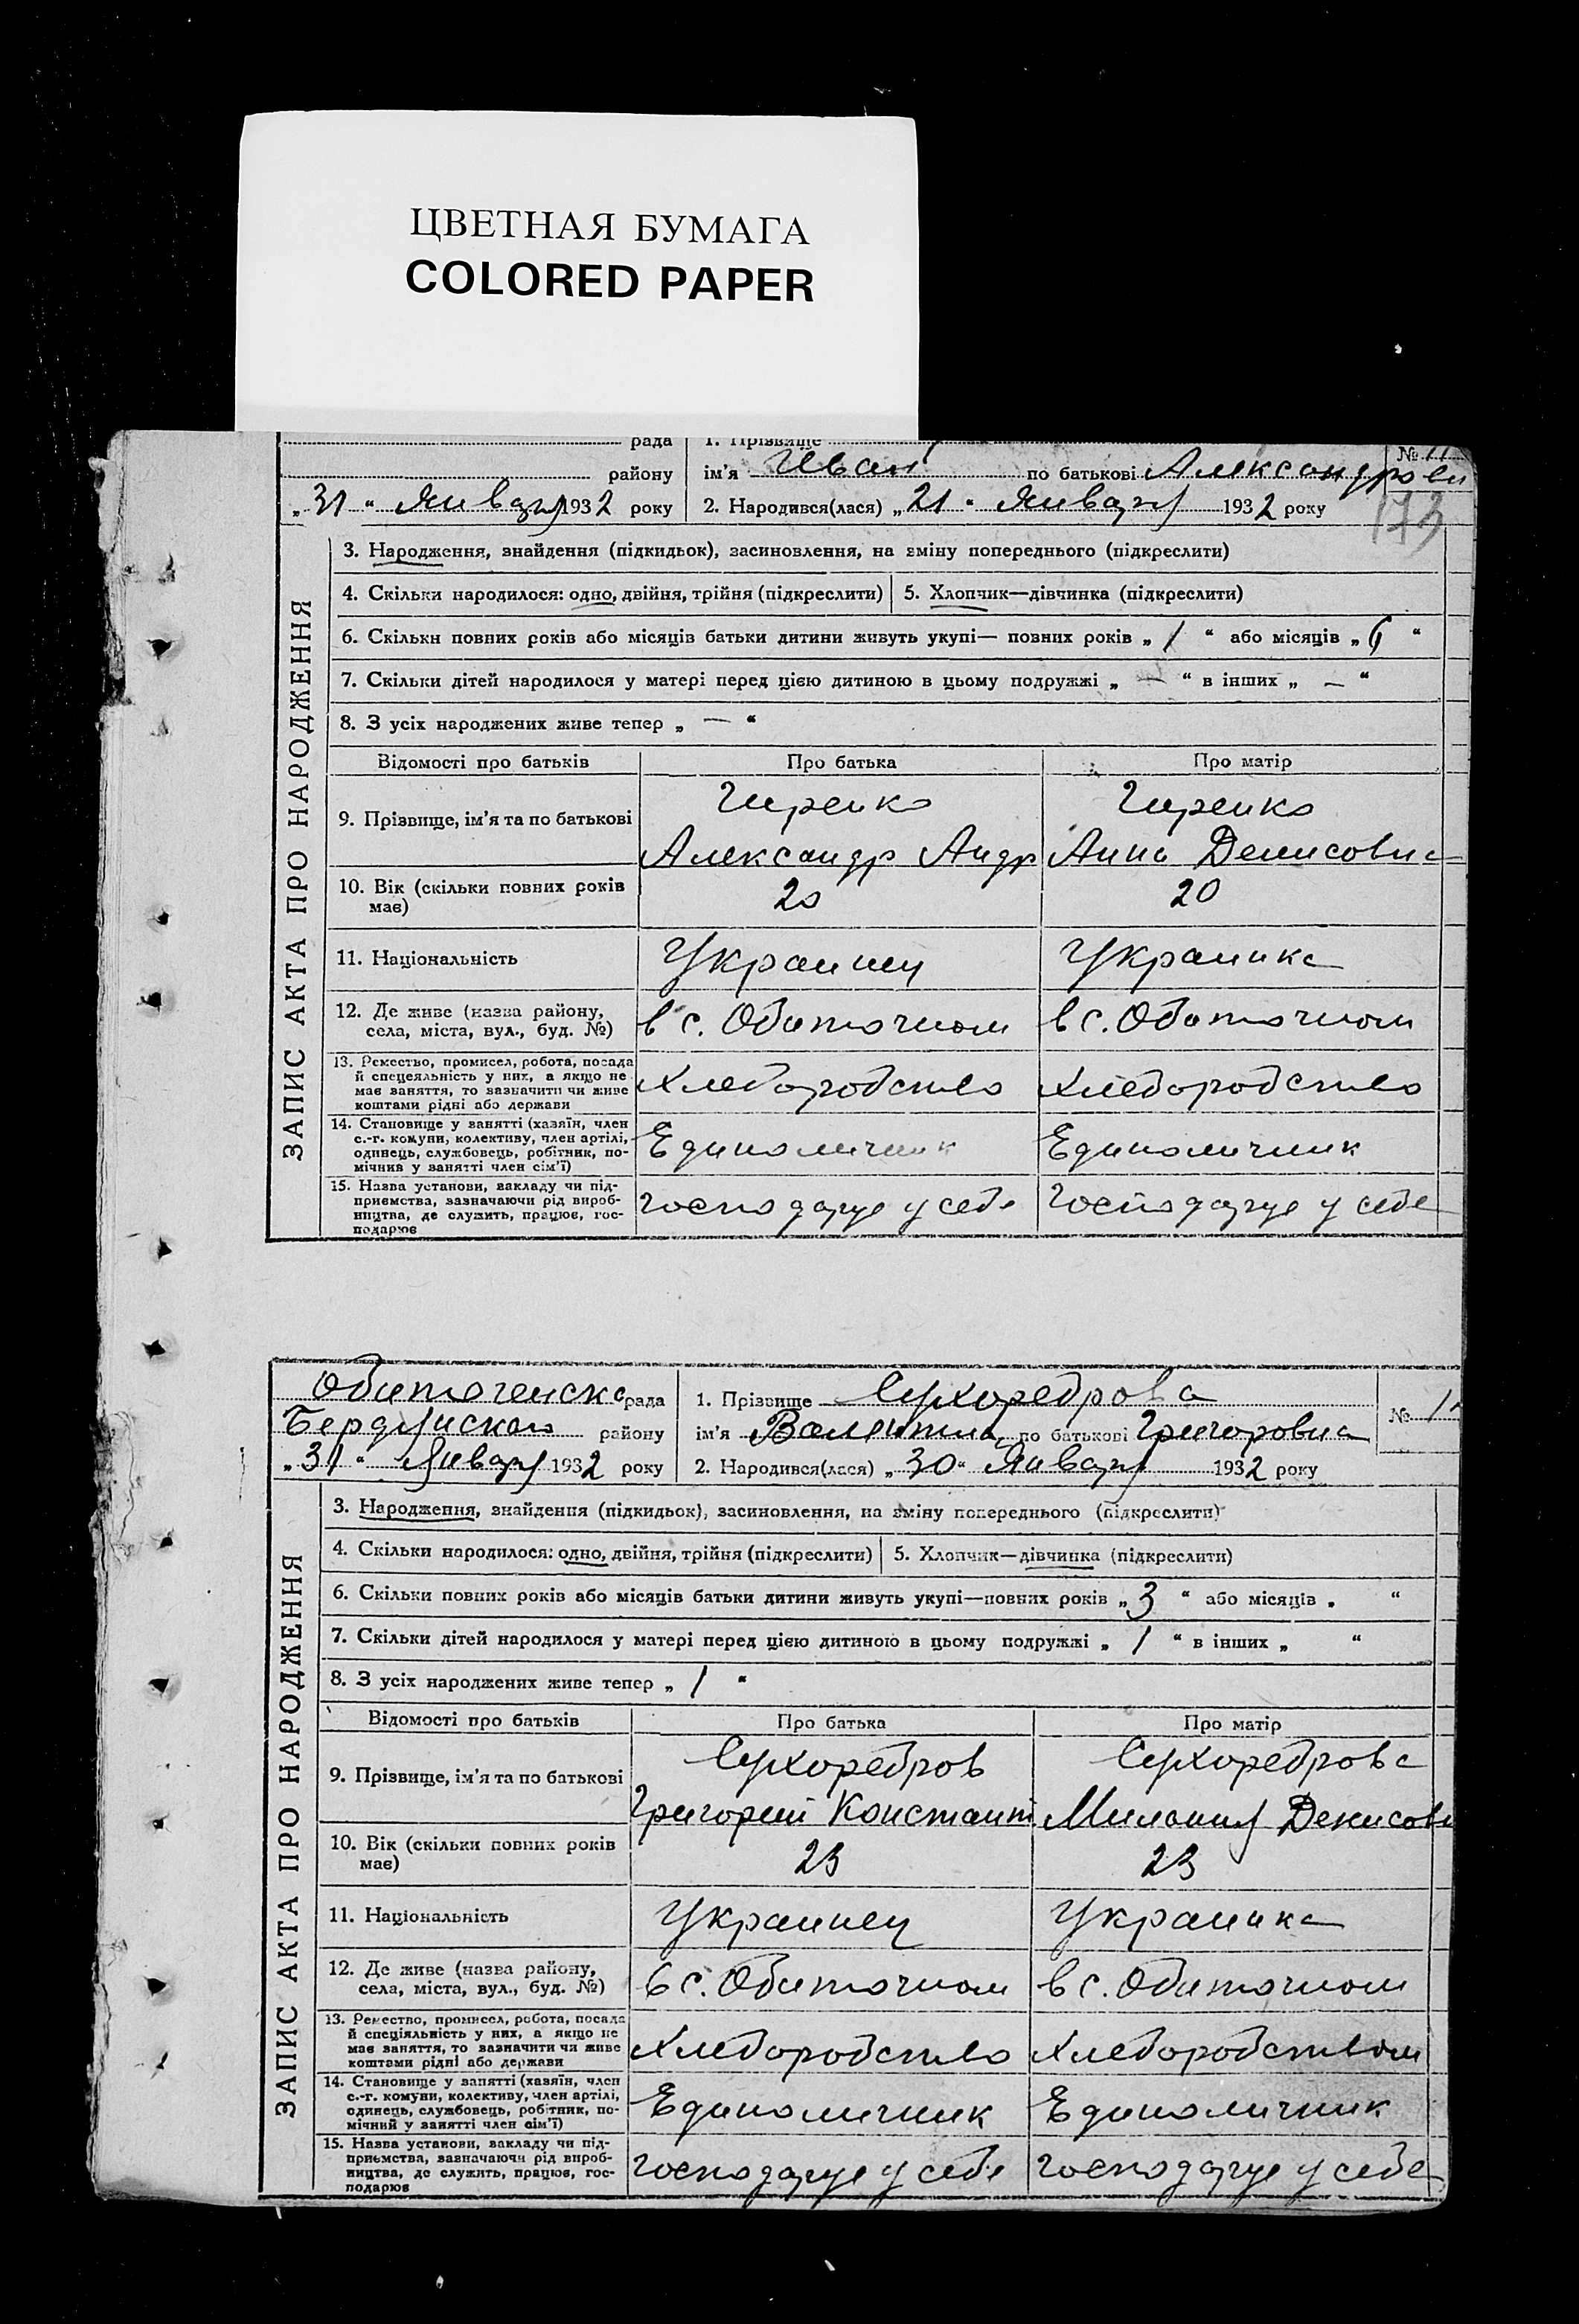 ЦВЕТНАЯ БУМАГА
COLORED PAPER
рада
1. Прізвище
№ 11
району
ім'я Иван по батькові Александрови
„ 31 “ Января 1932 року
2. Народився(лася) „ 21 “ Января 1932 року
173
ЗАПИС АКТА ПРО НАРОДЖЕННЯ
3. Народження, знайдення (підкидьок), засиновлення, на зміну попереднього (підкреслити)
4. Скільки народилося: одно, двійня, трійня (підкреслити) 5. Хлопчик—дівчинка (підкреслити)
6. Скільки повних років або місяців батьки дитини живуть укупі— повних років „ 1 “ або місяців „ 6 “
7. Скільки дітей народилося у матері перед цією дитиною в цьому подружжі „ — “ в інших „ — “
8. З усіх народжених живе тепер „ — “
Відомості про батьків Про батька Про матір
9. Прізвище, ім'я та по батькові
Гиренко Гиренко
Александр Андр Анна Денисовна
10. Вік (скільки повних років
має)
20 20
11. Національність Украинец Украинка
12. Де живе (назва району,
села, міста, вул., буд. №)
в с. Обиточном в с. Обиточном
13. Ремество, промисел, робота, посада
й спецеяльність у них, а якщо не
має заняття, то зазначити чи живе
коштами рідні або держави
Хлебородство Хлебородство
14. Становище у занятті (хазяїн, член
с.-г. комуни, колективу, член артілі,
одинець, службовець, робітник, по-
мічний у занятті член сім'ї)
Единоличник Единоличник
15. Назва установи, закладу чи під-
приємства, зазначаючи рід вироб-
ництва, де служить, працює, гос-
подарює
Господарує у себе Господарує у себе
Обиточенска рада
1. Прізвище Сухореброва
№ 1
Бердянского району
ім'я Валентина по батькові Григоровна
„ 31 “ Января 1932 року
2. Народився(лася) „ 30 “ Января 1932 року
ЗАПИС АКТА ПРО НАРОДЖЕННЯ
3. Народження, знайдення (підкидьок), засиновлення, на зміну попереднього (підкреслити)
4. Скільки народилося: одно, двійня, трійня (підкреслити) 5. Хлопчик—дівчинка (підкреслити)
6. Скільки повних років або місяців батьки дитини живуть укупі—повних років „ 3 “ або місяців „ “
7. Скільки дітей народилося у матері перед цією дитиною в цьому подружжі „ 1 “ в інших „ “
8. З усіх народжених живе тепер „ 1 “
Відомості про батьків Про батька Про матір
9. Прізвище, ім'я та по батькові
Сухоребров Сухореброва
Григорий Констант Милания Денисовн
10. Вік (скільки повних років
має)
23 23
11. Національність Украинец Украинка
12. Де живе (назва району,
села, міста, вул., буд. №)
в с. Обиточном в с. Обиточном
13. Ремество, промисел, робота, посада
й спеціяльність у них, а якщо не
має заняття, то зазначити чи живе
коштами рідні або держави
Хлебородство Хлебородством
14. Становище у занятті (хазяїн, член
с.-г. комуни, колективу, член артілі,
одинець, службовець, робітник, по-
мічний у занятті член сім'ї)
Единоличник Единоличник
15. Назва установи, закладу чи під-
приємства, зазначаючи рід вироб-
ництва, де служить, працює, гос-
подарює
Господарує у себе Господарує у себе